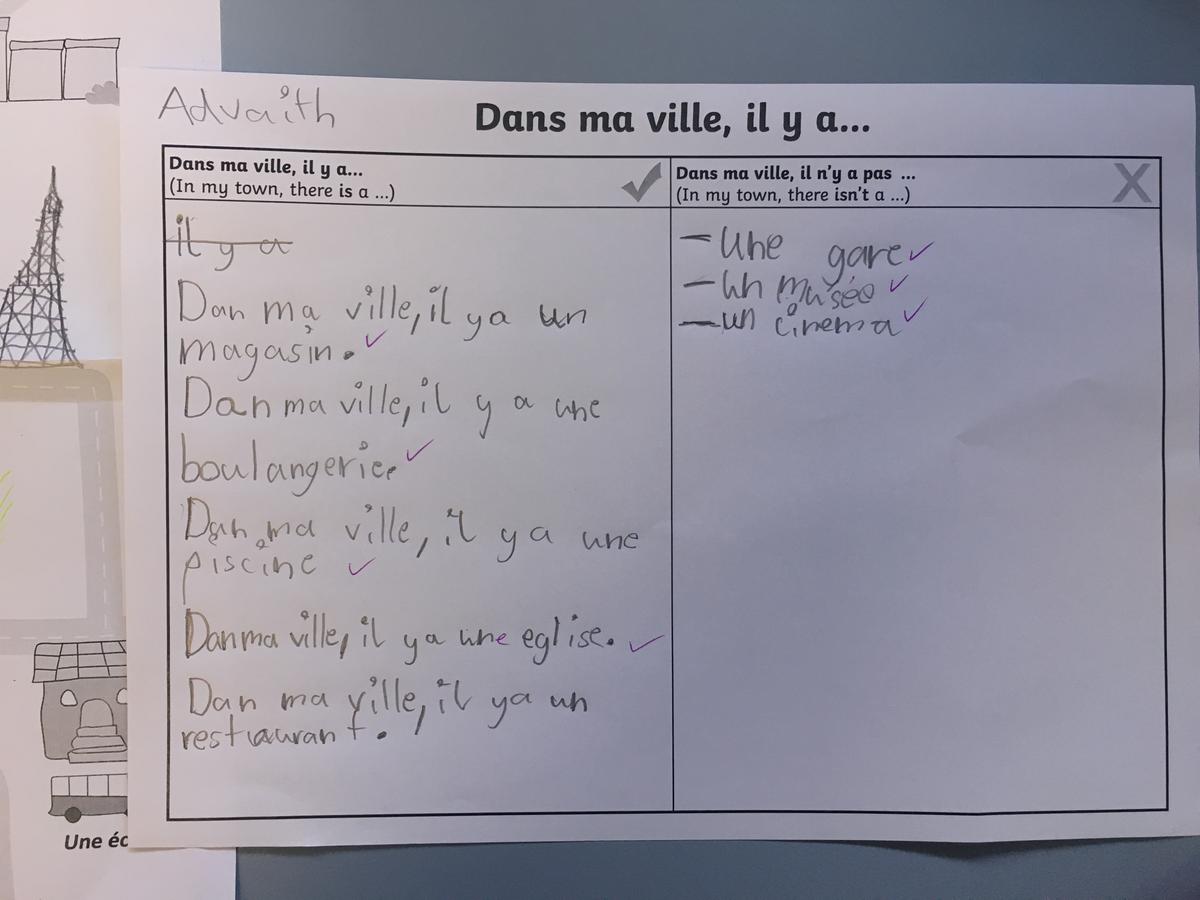 Advaith
Dans ma ville, il y a...
Dans ma ville, il y a...
(In my town, there is a ...)
il y a
Dan ma ville, il y a un
magasin.
Dan ma ville, il y a une
boulangerie.
Dan ma ville, il y a une
piscine
Dan ma ville, il y a une eglise.
Dan ma ville, il y a un
restuarant.
Dans ma ville, il n'y a pas ...
(In my town, there isn't a ...)
- une gare
- un muséo
- un cinema
Une éc